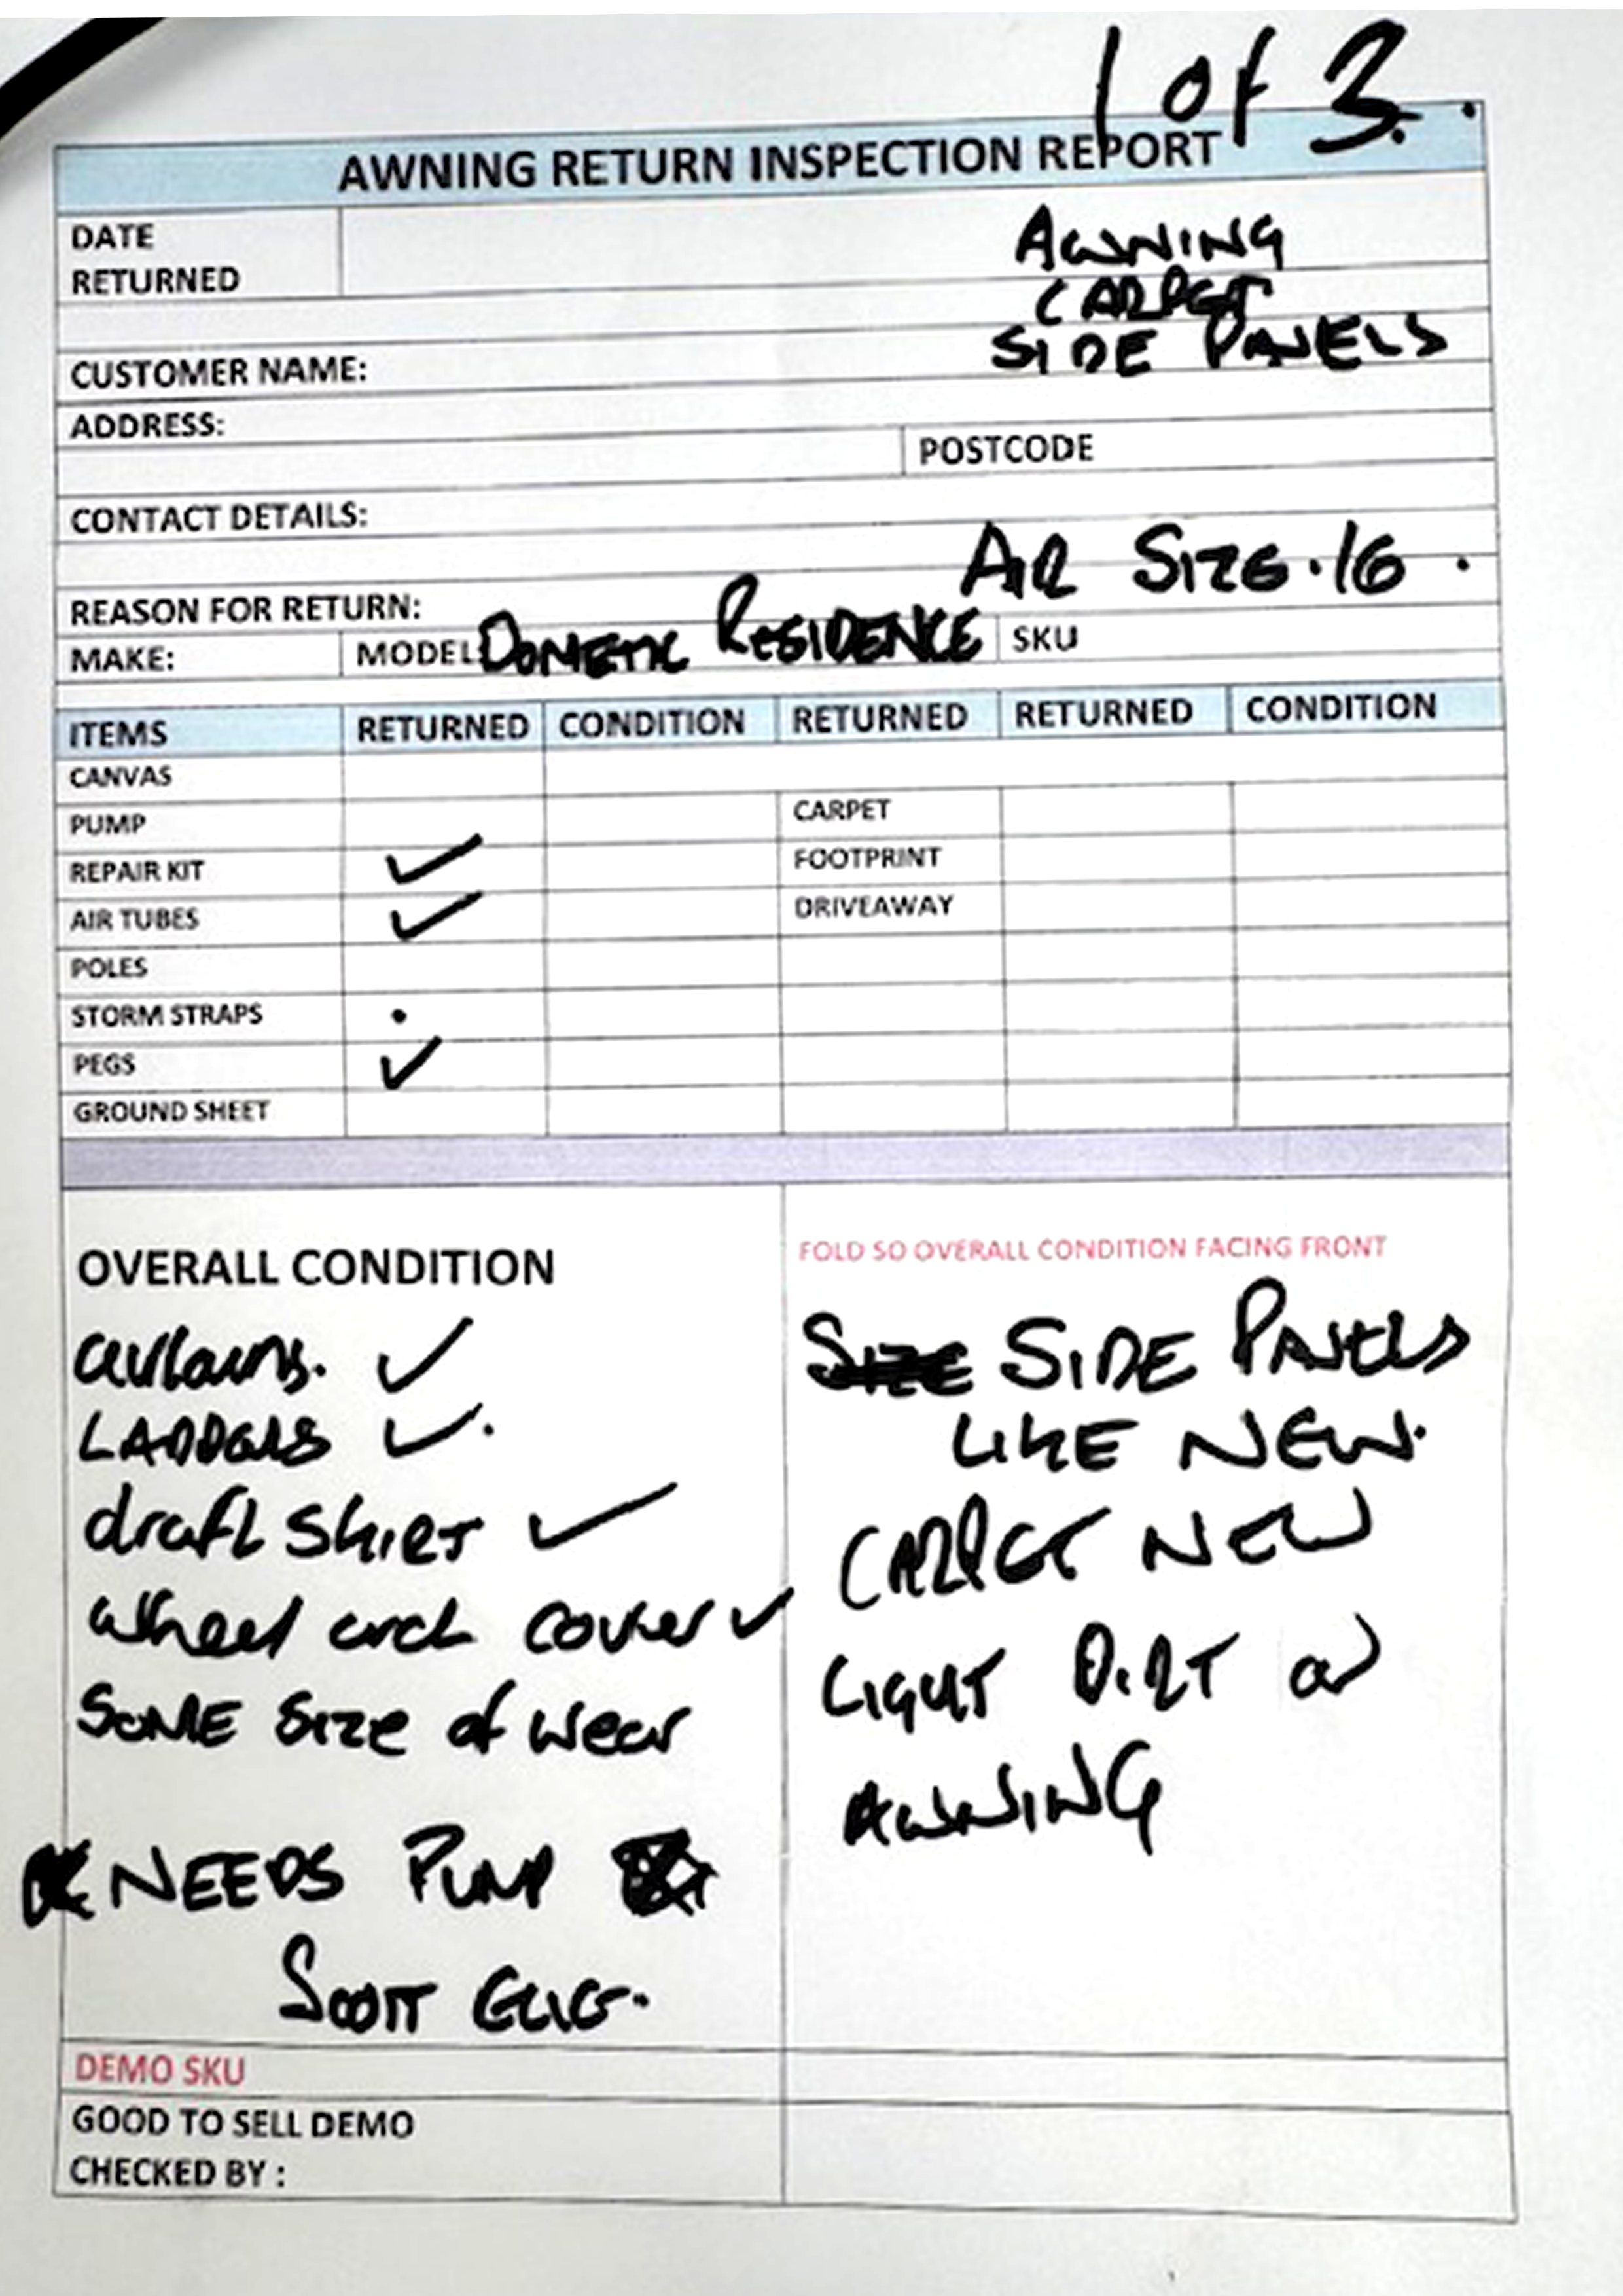 1 of 3.
AWNING RETURN INSPECTION REPORT
DATE RETURNED
AWNING
CARPET
SIDE PANELS
CUSTOMER NAME:
ADDRESS:
POSTCODE
CONTACT DETAILS:
AIR SIZE.16.
REASON FOR RETURN:
MAKE: MODEL: DOMETIC RESIDENCE SKU
ITEMS RETURNED CONDITION RETURNED RETURNED CONDITION
CANVAS
PUMP CARPET
REPAIR KIT ✓ FOOTPRINT
AIR TUBES ✓ DRIVEAWAY
POLES
STORM STRAPS
PEGS ✓
GROUND SHEET
OVERALL CONDITION
curtains. ✓
LADDERS ✓.
draft SKIRT ✓
wheel arch cover ✓
SOME Size of wear
NEEDS PUMP
SCOTT
FOLD SO OVERALL CONDITION FACING FRONT
SIZE SIDE PANELS
LIKE NEW.
CARPET NEW
LIGHT DIRT on
AWNING
DEMO SKU
GOOD TO SELL DEMO
CHECKED BY :